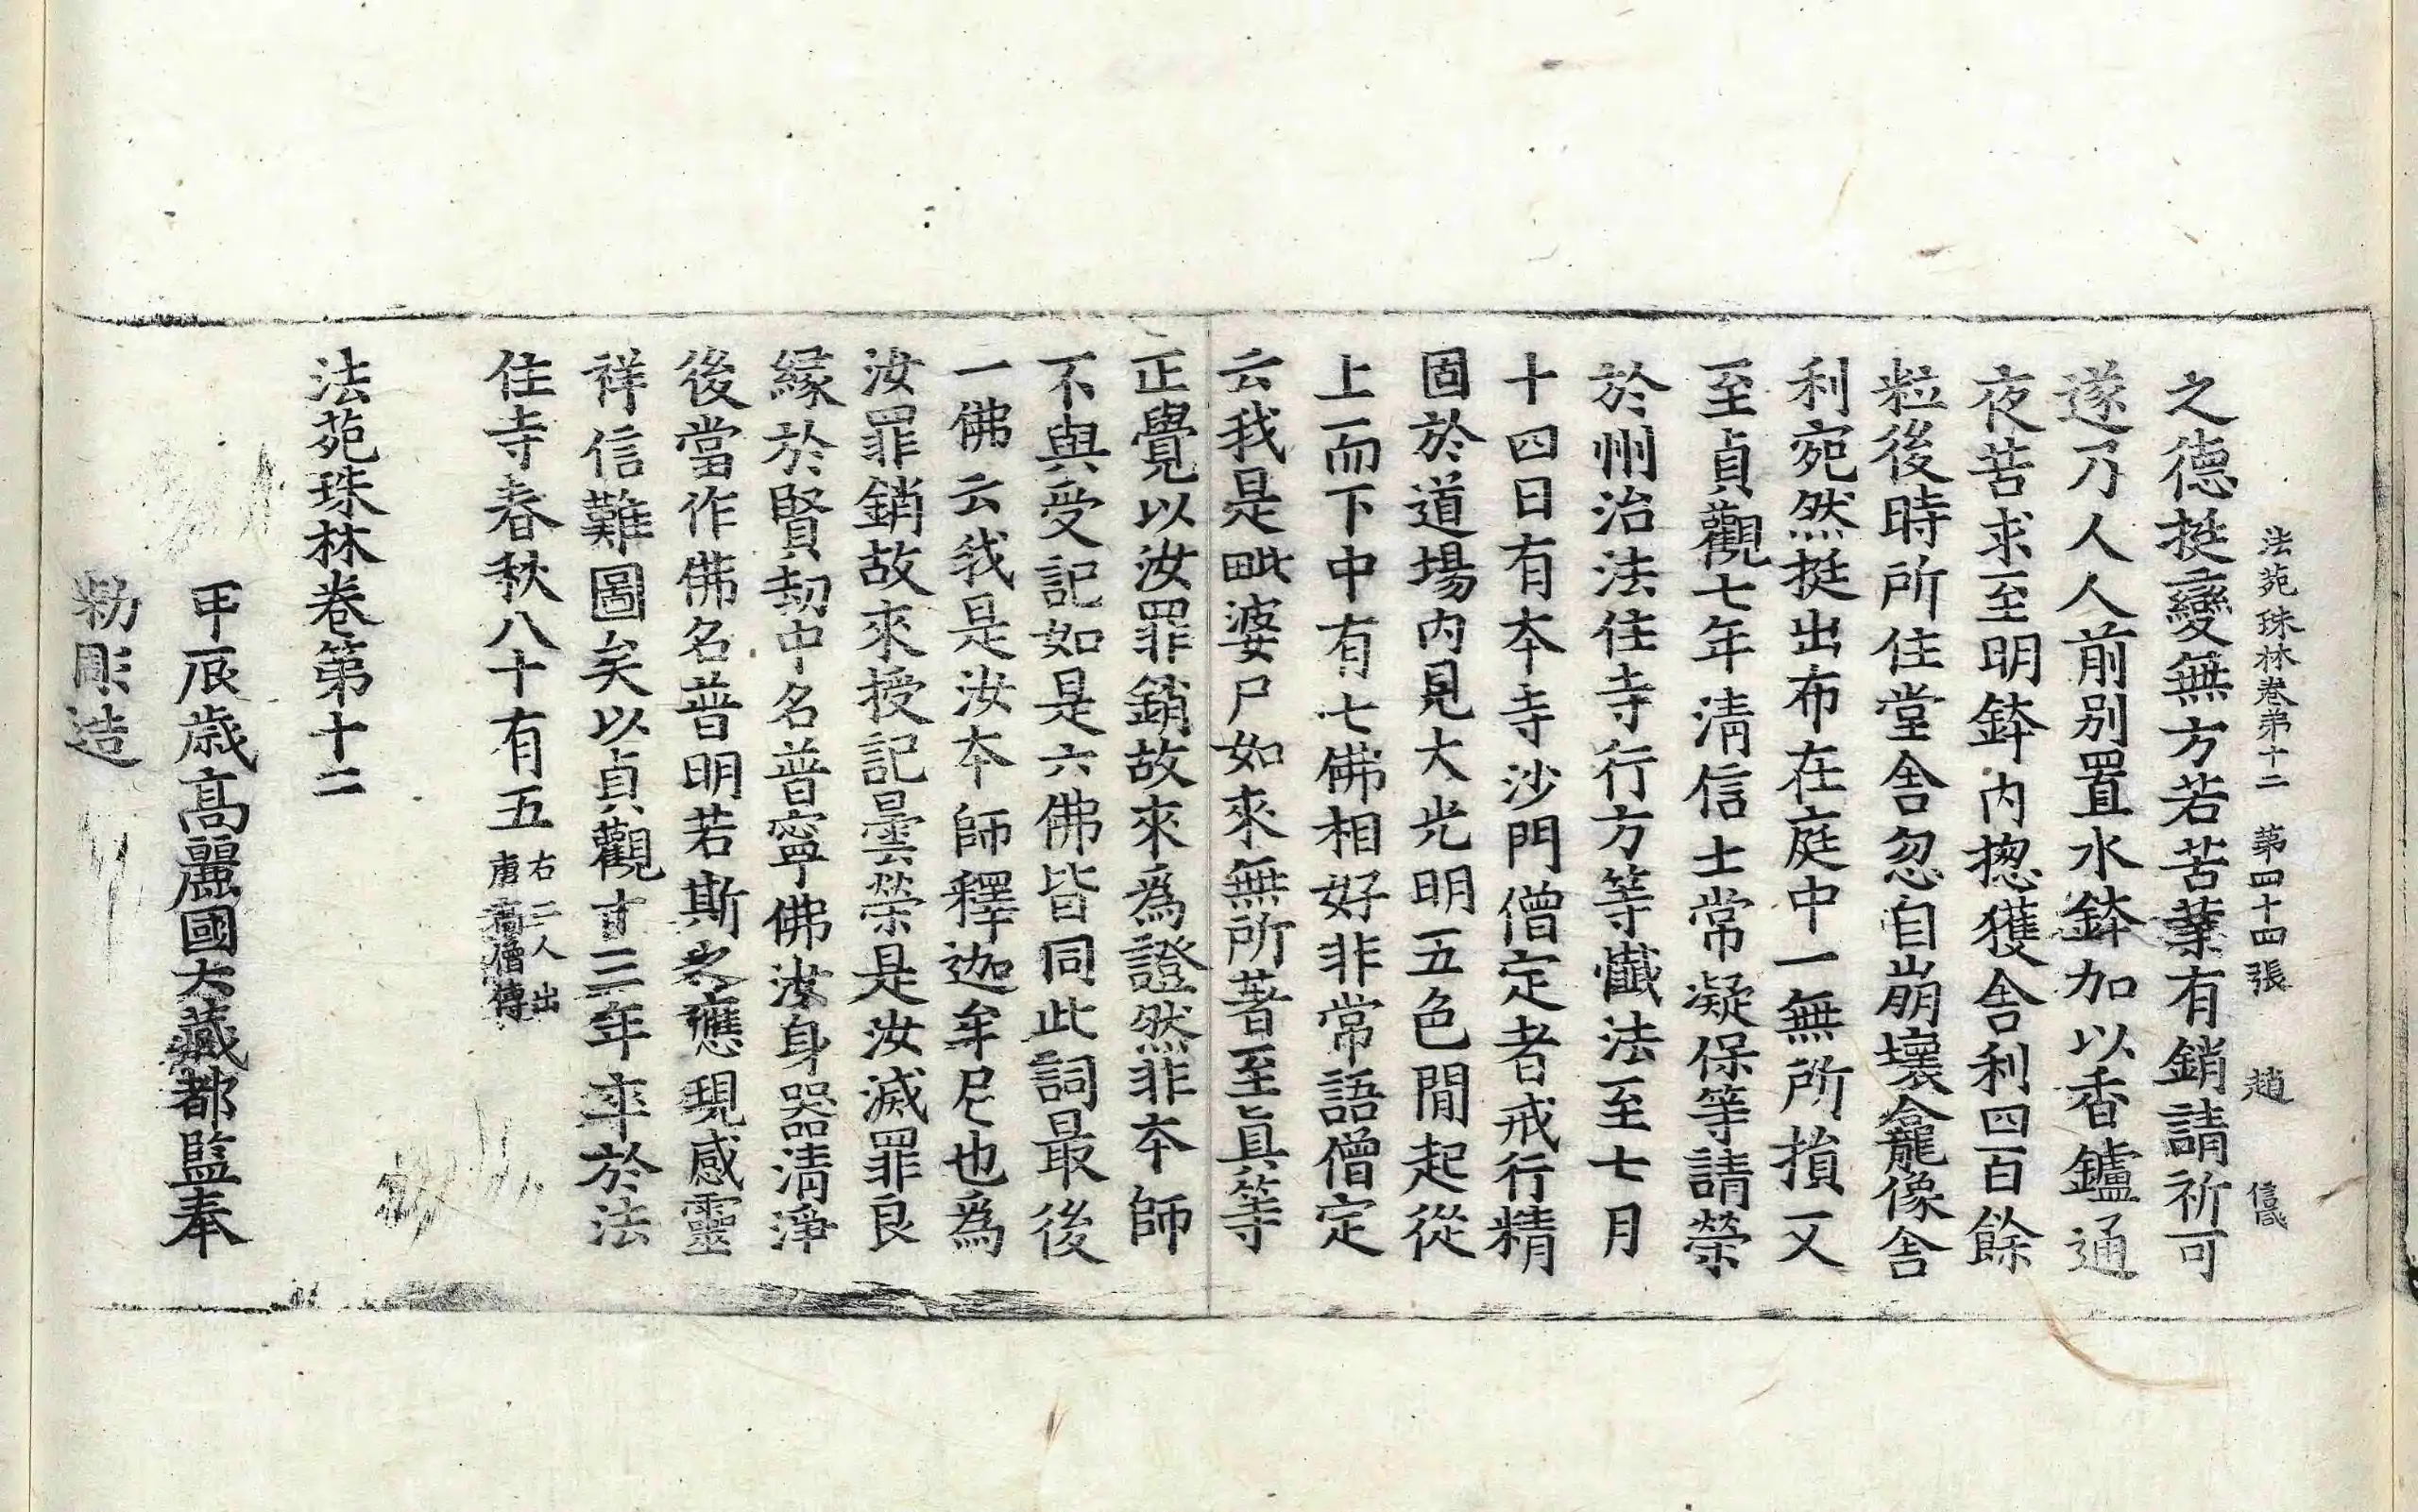 法苑珠林卷第十二　第四十四張　趙　信
之德挺變無方若苦業有銷請祈可
遂乃人人前別置水鉢加以香鑪通
夜苦求至明鉢内揔獲舎利四百餘
粒後時所住堂舎忽自崩壞龕像舎
利宛然挺出布在庭中一無所損又
至貞觀七年清信士常凝保等請榮
於州治法住寺行方等懺法至七月
十四日有夲寺沙門僧定者戒行精
固於道場内見大光明五色閒起從
上而下中有七佛相好非常語僧定
云我是毗婆尸如來無所著至真等
正覺以汝罪銷故來為證然非夲師
不與受記如是六佛皆同此詞最後
一佛云我是汝夲師釋迦牟尼也為
汝罪銷故來授記曇榮是汝滅罪良
緣於賢劫中名普寧佛汝身器清淨
後當作佛名普明若斯之應現感靈
祥信難圖矣以貞觀十三年卒於法
住寺春秋八十有五右二人出唐高僧傳
法苑珠林卷第十二
甲辰歲高麗國大藏都監奉
勑彫造